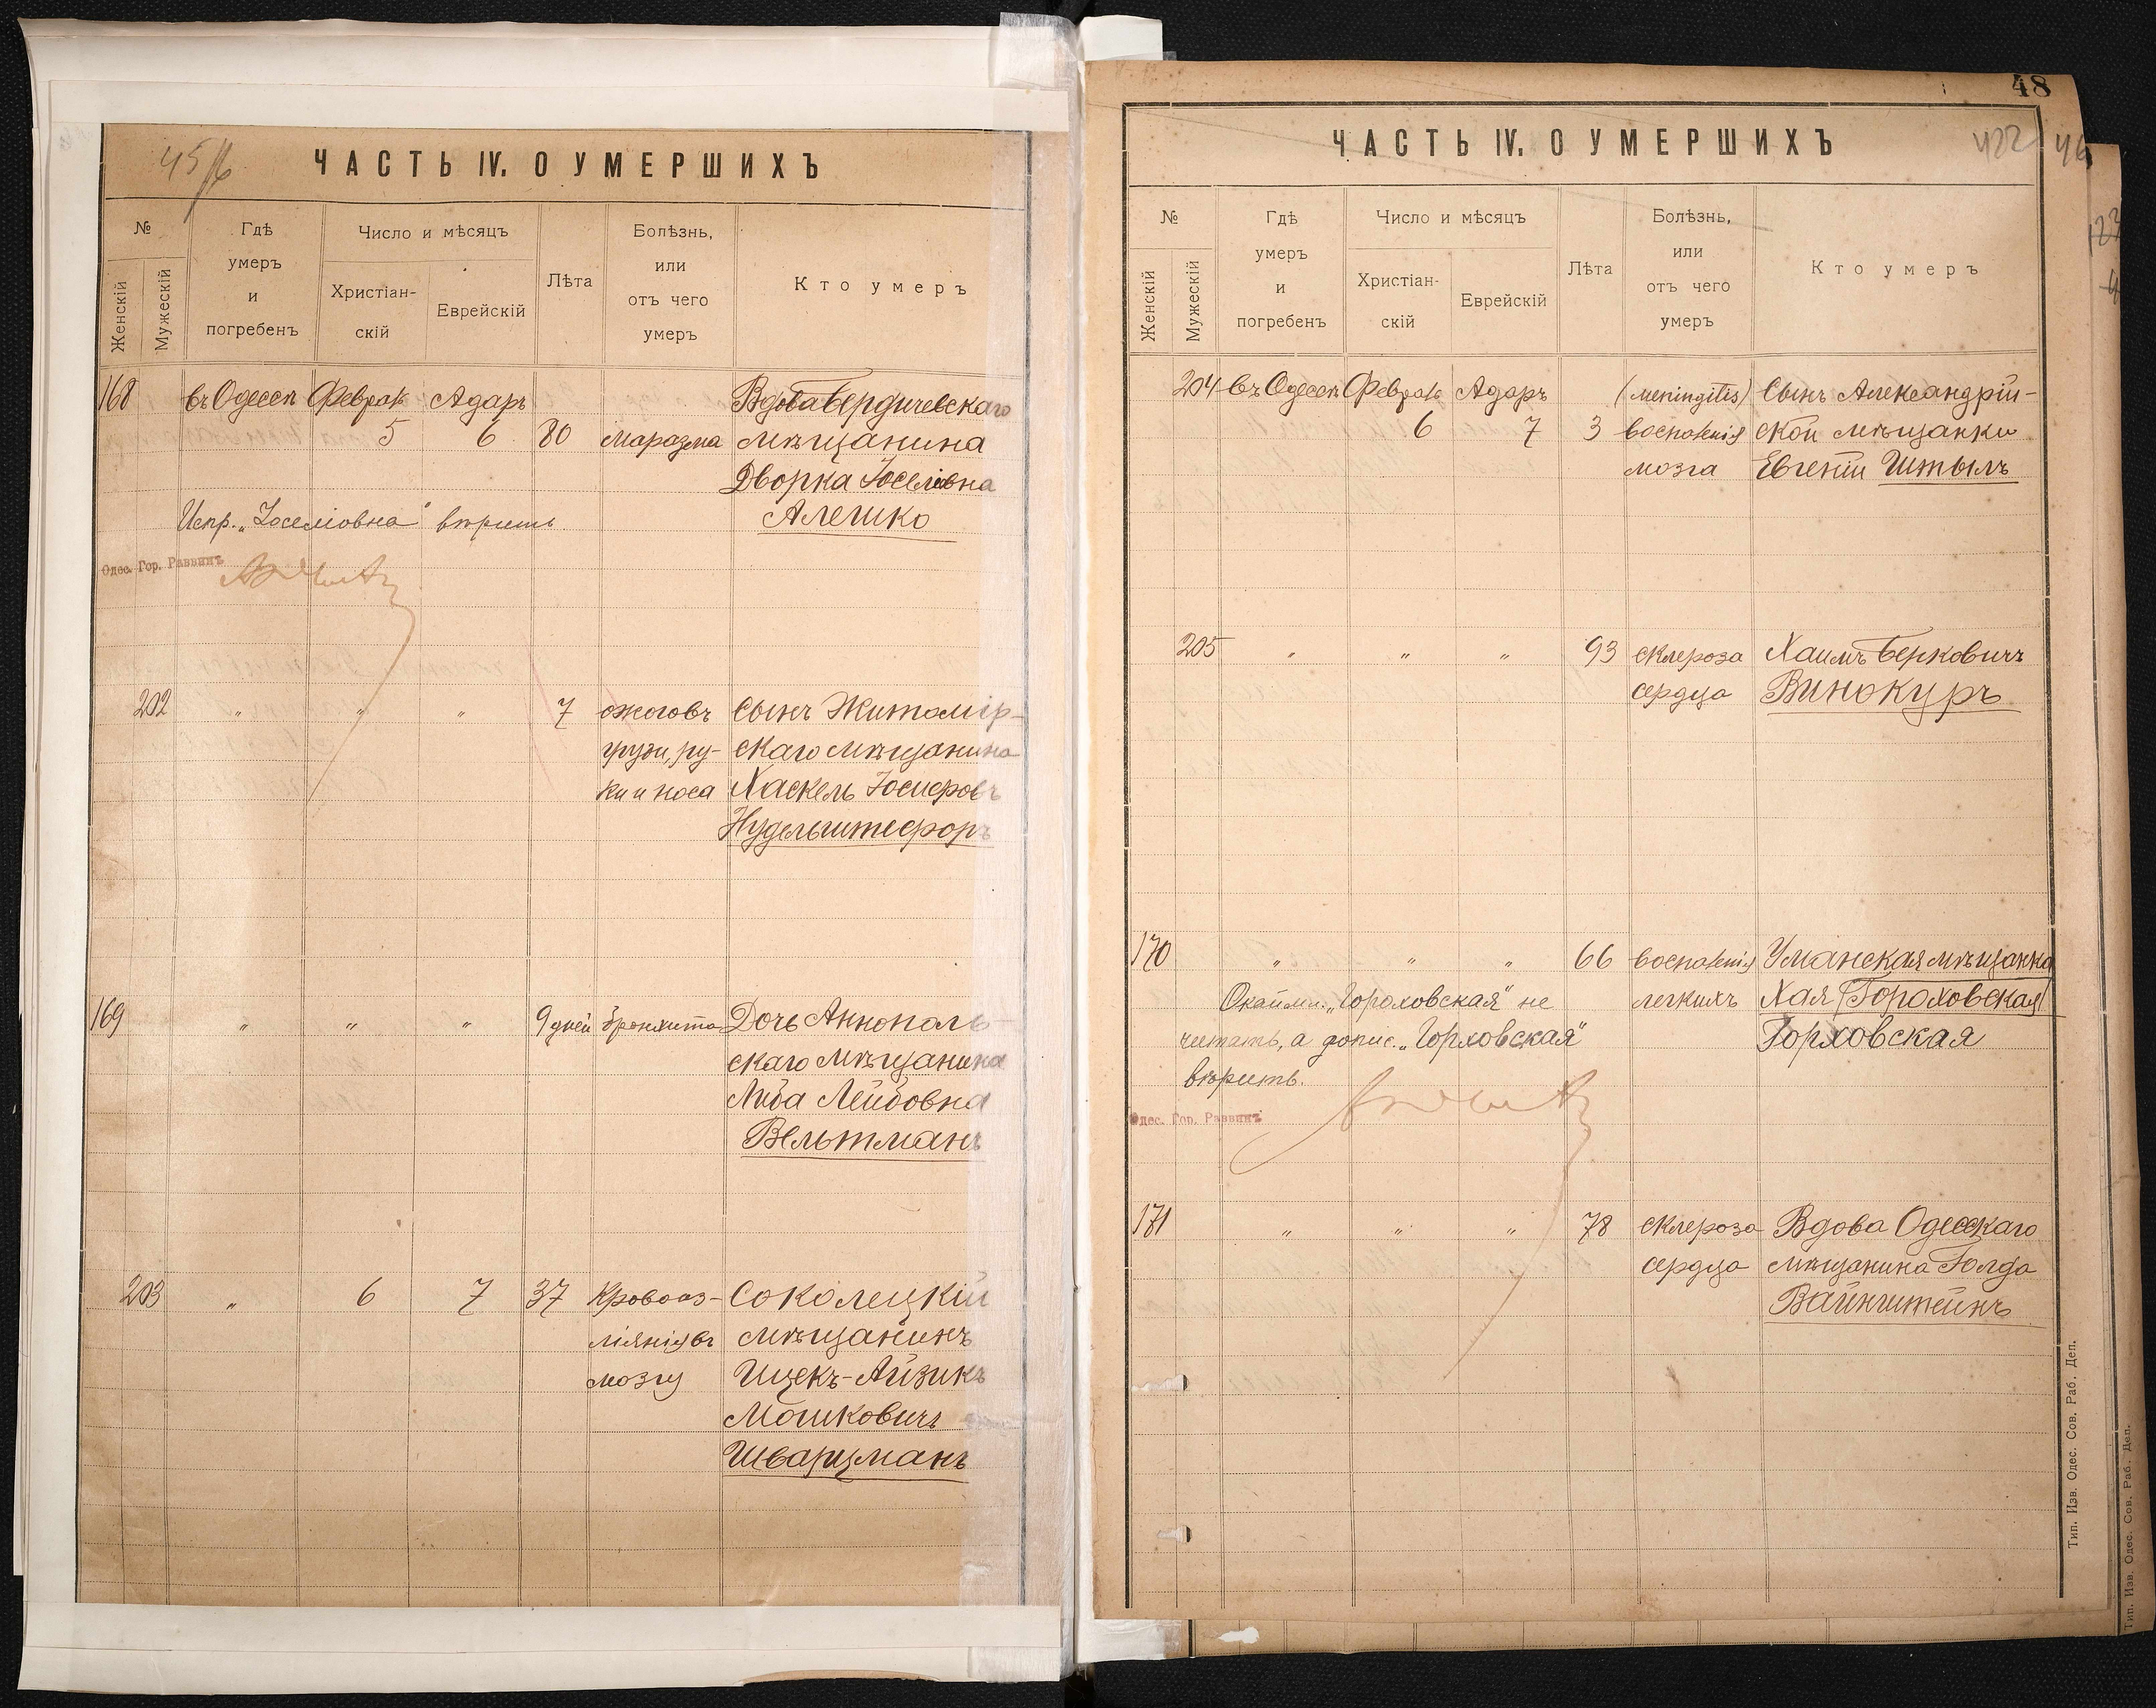 45
ЧАСТЬ IV. О УМЕРШИХЪ
№
Женскій
Мужескій
Гдѣ
умеръ
и
погребенъ
Число и мѣсяцъ
Христіан-
скій
Еврейскій
Лѣта
Болѣзнь,
или
отъ чего
умеръ
Кто умеръ
168 въ Одессѣ Феврал Адаръ Вдова Бердичевскаго
5 6 80 маразма мѣщанина
Дворка Іоселіовна
Испр. „Іоселіовна" вѣрить Алешко
Одес. Гор. Раввинъ
202 „ „ „ 7 ожоговъ Сынъ Житомір-
груди, ру- скаго мѣщанина
ки и носа Хаскель Іосифовъ
Нудельштефоръ
169 „ „ „ 9 дней бронхита Дочь Аннополь-
скаго мѣщанина
Либа Лейбовна
Вельтманъ
203 „ 6 7 37 Кровоиз- Соколецкій
ліянія въ мѣщанинъ
мозгу Ицекъ-Айзикъ
Мошковичъ
Шварцманъ
48
ЧАСТЬ IV. О УМЕРШИХЪ
422 46
№
Женскій
Мужескій
Гдѣ
умеръ
и
погребенъ
Число и мѣсяцъ
Христіан-
скій
Еврейскій
Лѣта
Болѣзнь,
или
отъ чего
умеръ
Кто умеръ
204 въ Одессѣ Феврал Адаръ (meningitis) Сынъ Александрій-
6 7 3 воспаленія ской мѣщанки
мозга Евгеніи Штыль
205 „ „ „ 93 склероза Хаимъ Берковичъ
сердца Винокуръ
170 „ „ „ 66 воспаленія Уманская мѣщанка
Окайми. „Гораховская" не легкихъ Хая Гораховская
читать, а допис. „Горховская" Горховская
вѣрить.
Одес. Гор. Раввинъ
171 „ „ „ 78 склероза Вдова Одесскаго
сердца мѣщанина Голда
Вайнштейнъ
Тип. Изв. Одес. Сов. Раб. Деп.
Тип. Изв. Одес. Сов. Раб. Деп.